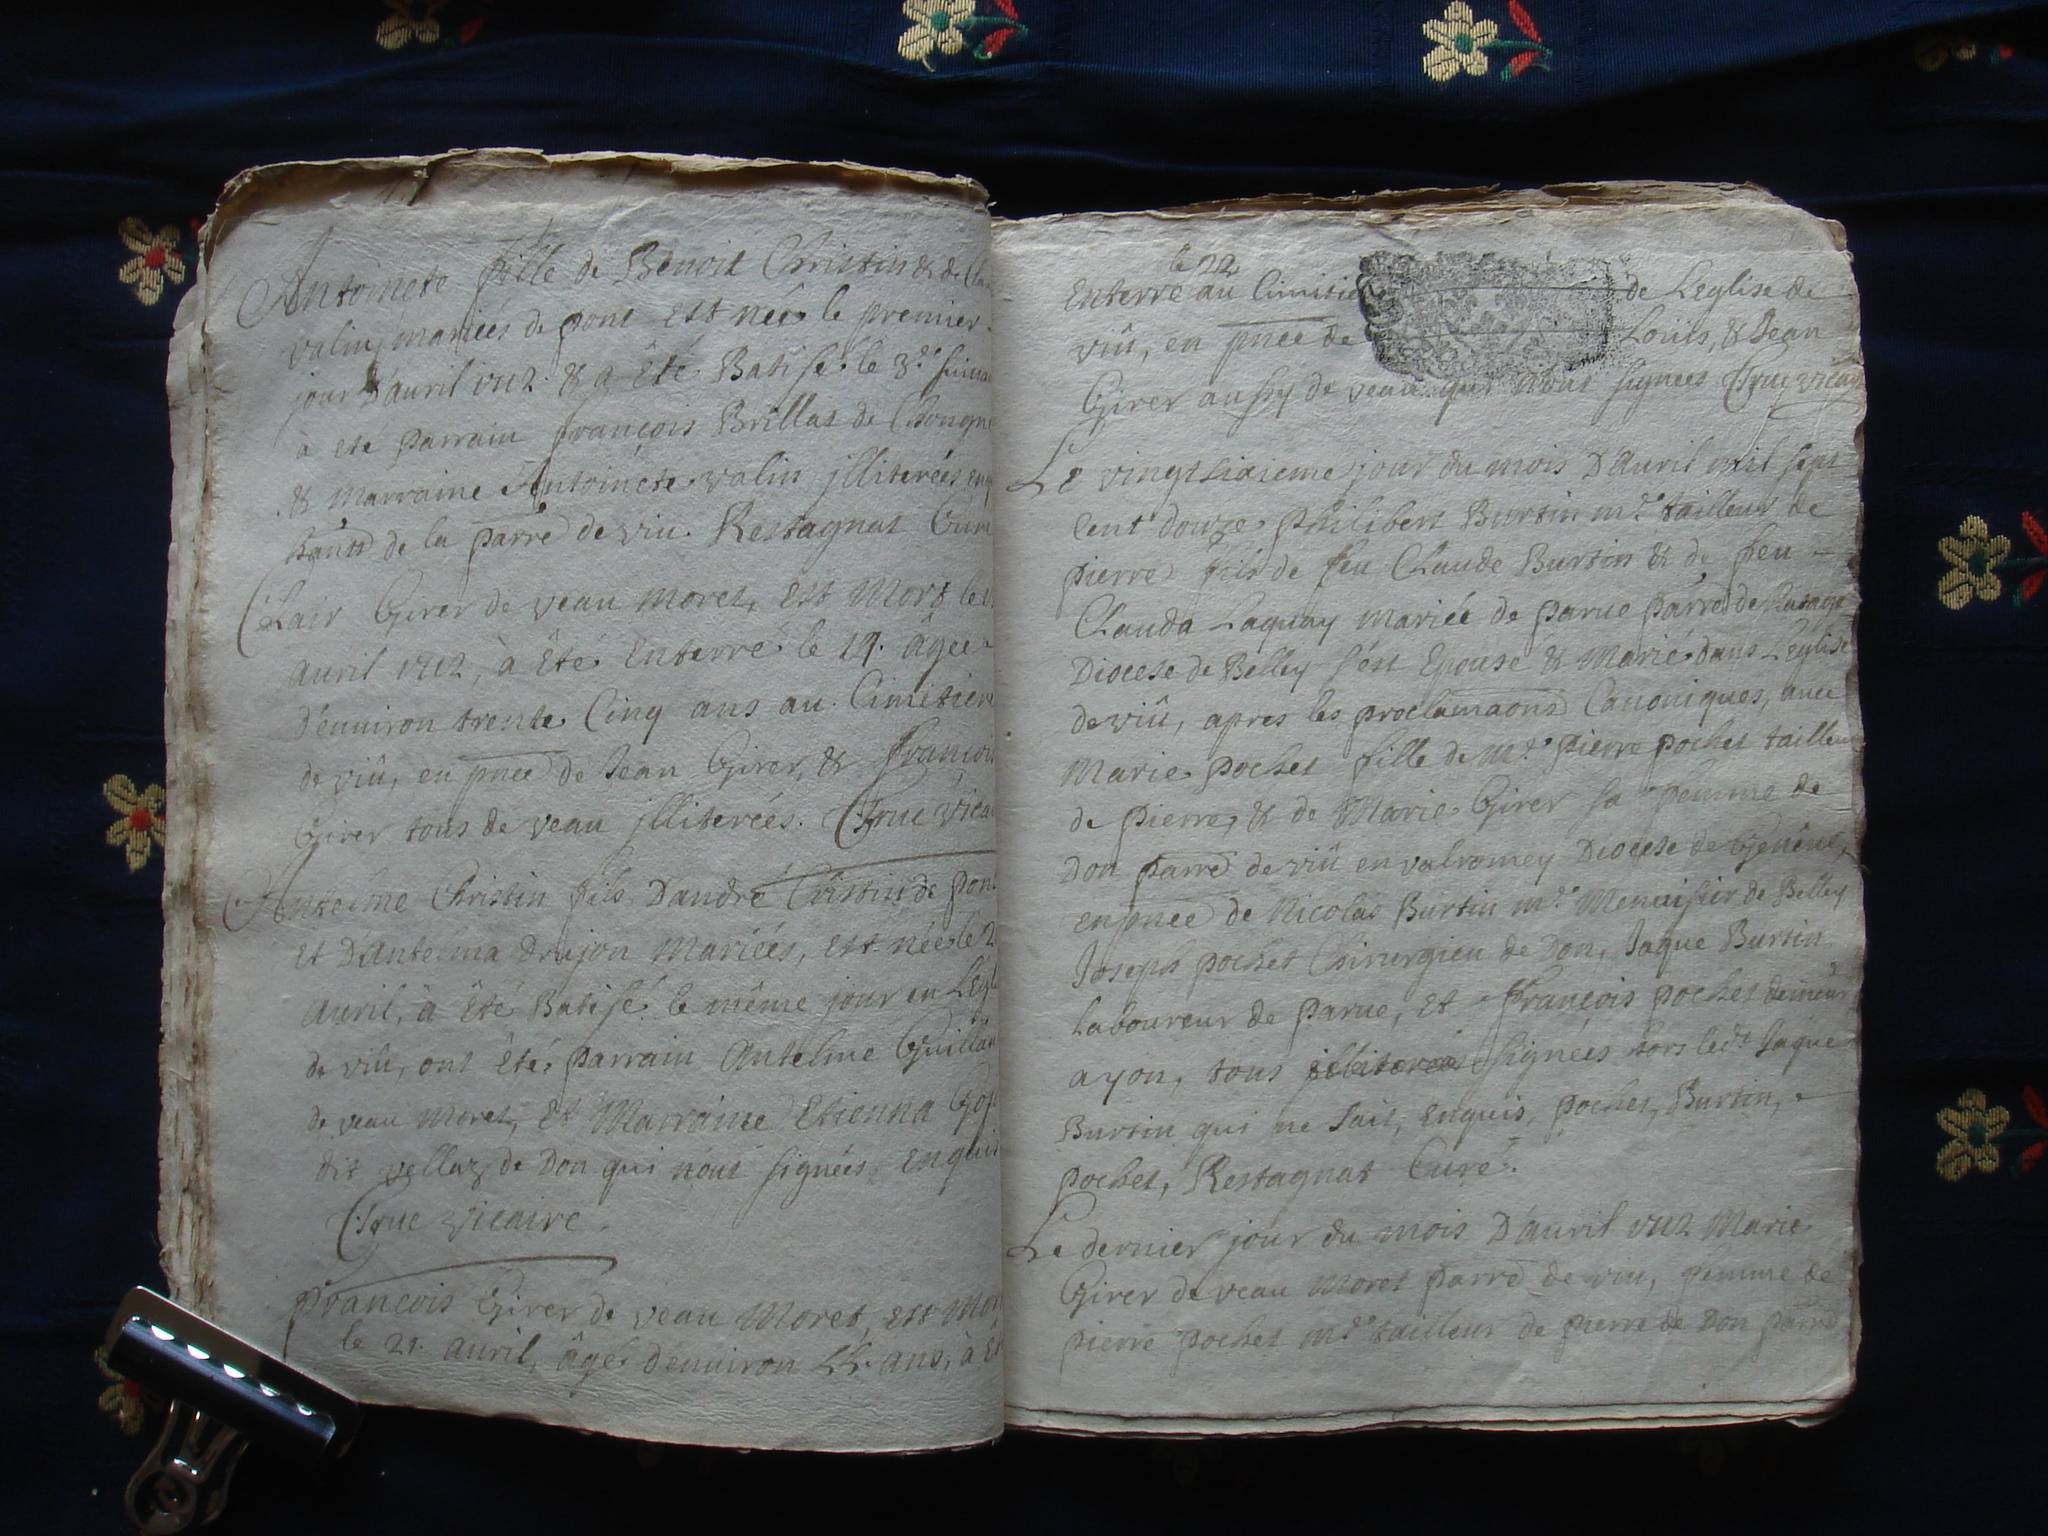 Antoinete fille de Benoit Christin & de Clau
valin, mariées de pont est née le premier
jour D'auril 1712. & a été Batisé le 3.e suiuan
à ete parrain françois Brillat de Chongne
& marraine Antoinete valin jlliterées enq
de la parre de viu. Restagnat Cure
Clair Girer de veau moret, est mort le
auril 1712, à été Enterré le 19. âgée
d'enuiron trente Cinq ans au Cimitiere
de viû, en pnce de Jean Girer, & françois
Girer tous de veau jlliterées. Crue vicai
Antelme Christin fils D'andré Cristin de pont
et D'Antelma Drujon mariées, est née le 2
auril, à été Batisé le même jour en L'Egli
de viû, ont été parrain Antelme Guillau
de veau moret, et Marraine Etienna Goj
dit vellaz de Don qui n'ont signées, enquis
Crue vicaire.
François Girer de veau Moret, est mor
le 21. auril, âgé d'enuiron 55. ans, à et
le 22
Enterré au Cimitie de L'eglise de
viû, en pnce de Louis, & Jean
Girer aussy de veau qui n'ont signees Crue vicai
Le vingt sixieme jour du mois D'auril mil sept
cent douze philibert Burtin m.e tailleur de
pierre fils de feu Claude Burtin & de feu
Clauda Laquay mariée de parue parre de
Diocese de Belley s'est Epousé & Marié dans L'eglise
de viû, apres les proclamaons Canoniques, auec
Marie pochet fille de m.e pierre pochet tailleur
de pierre, & de Marie Girer sa femme de
Don parre de viû en valromey Diocese de Genéue,
en pnce de Nicolas Burtin m.e Menuisier de Belley
Joseph pochet Chirurgien de Don, Jaque Burtin
Laboureur de parue, et François pochet demeur
a yon, tous jlliterées signées hors led.t Jaque
Burtin qui ne sait, enquis, pochet, Burtin,
pochet, Restagnat Curé.
Le dernier jour du mois D'auril 1712 Marie
Girer de veau moret parre de viu, femme de
pierre pochet m.e tailleur de pierre de Don parre